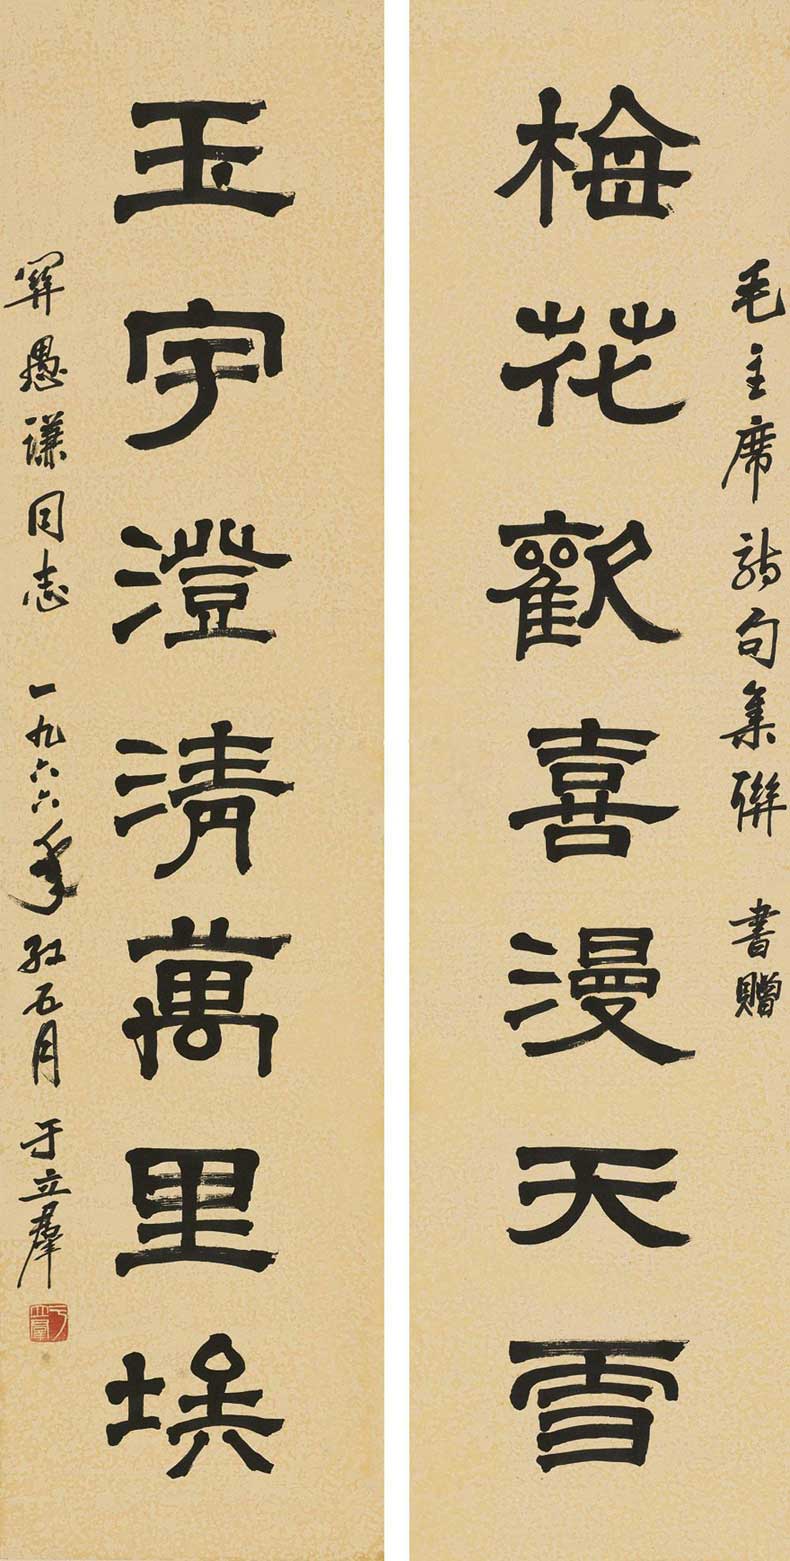 毛主席詩句集聯 書贈
梅花歡喜漫天雪
玉宇澄清萬里埃
關愚謙同志 一九六六年紅五月 于立羣